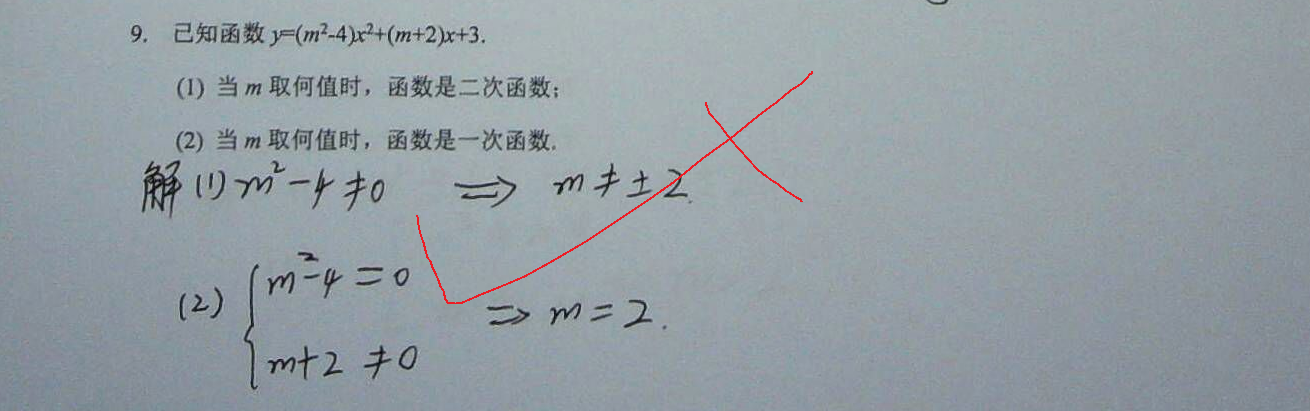 9. 已知函数 y=(m²-4)x²+(m+2)x+3.
(1) 当 m 取何值时，函数是二次函数；
(2) 当 m 取何值时，函数是一次函数.
解 (1) m²-4≠0 ⇒ m≠±2.
(2) { m²-4=0
⇒ m=2.
m+2≠0